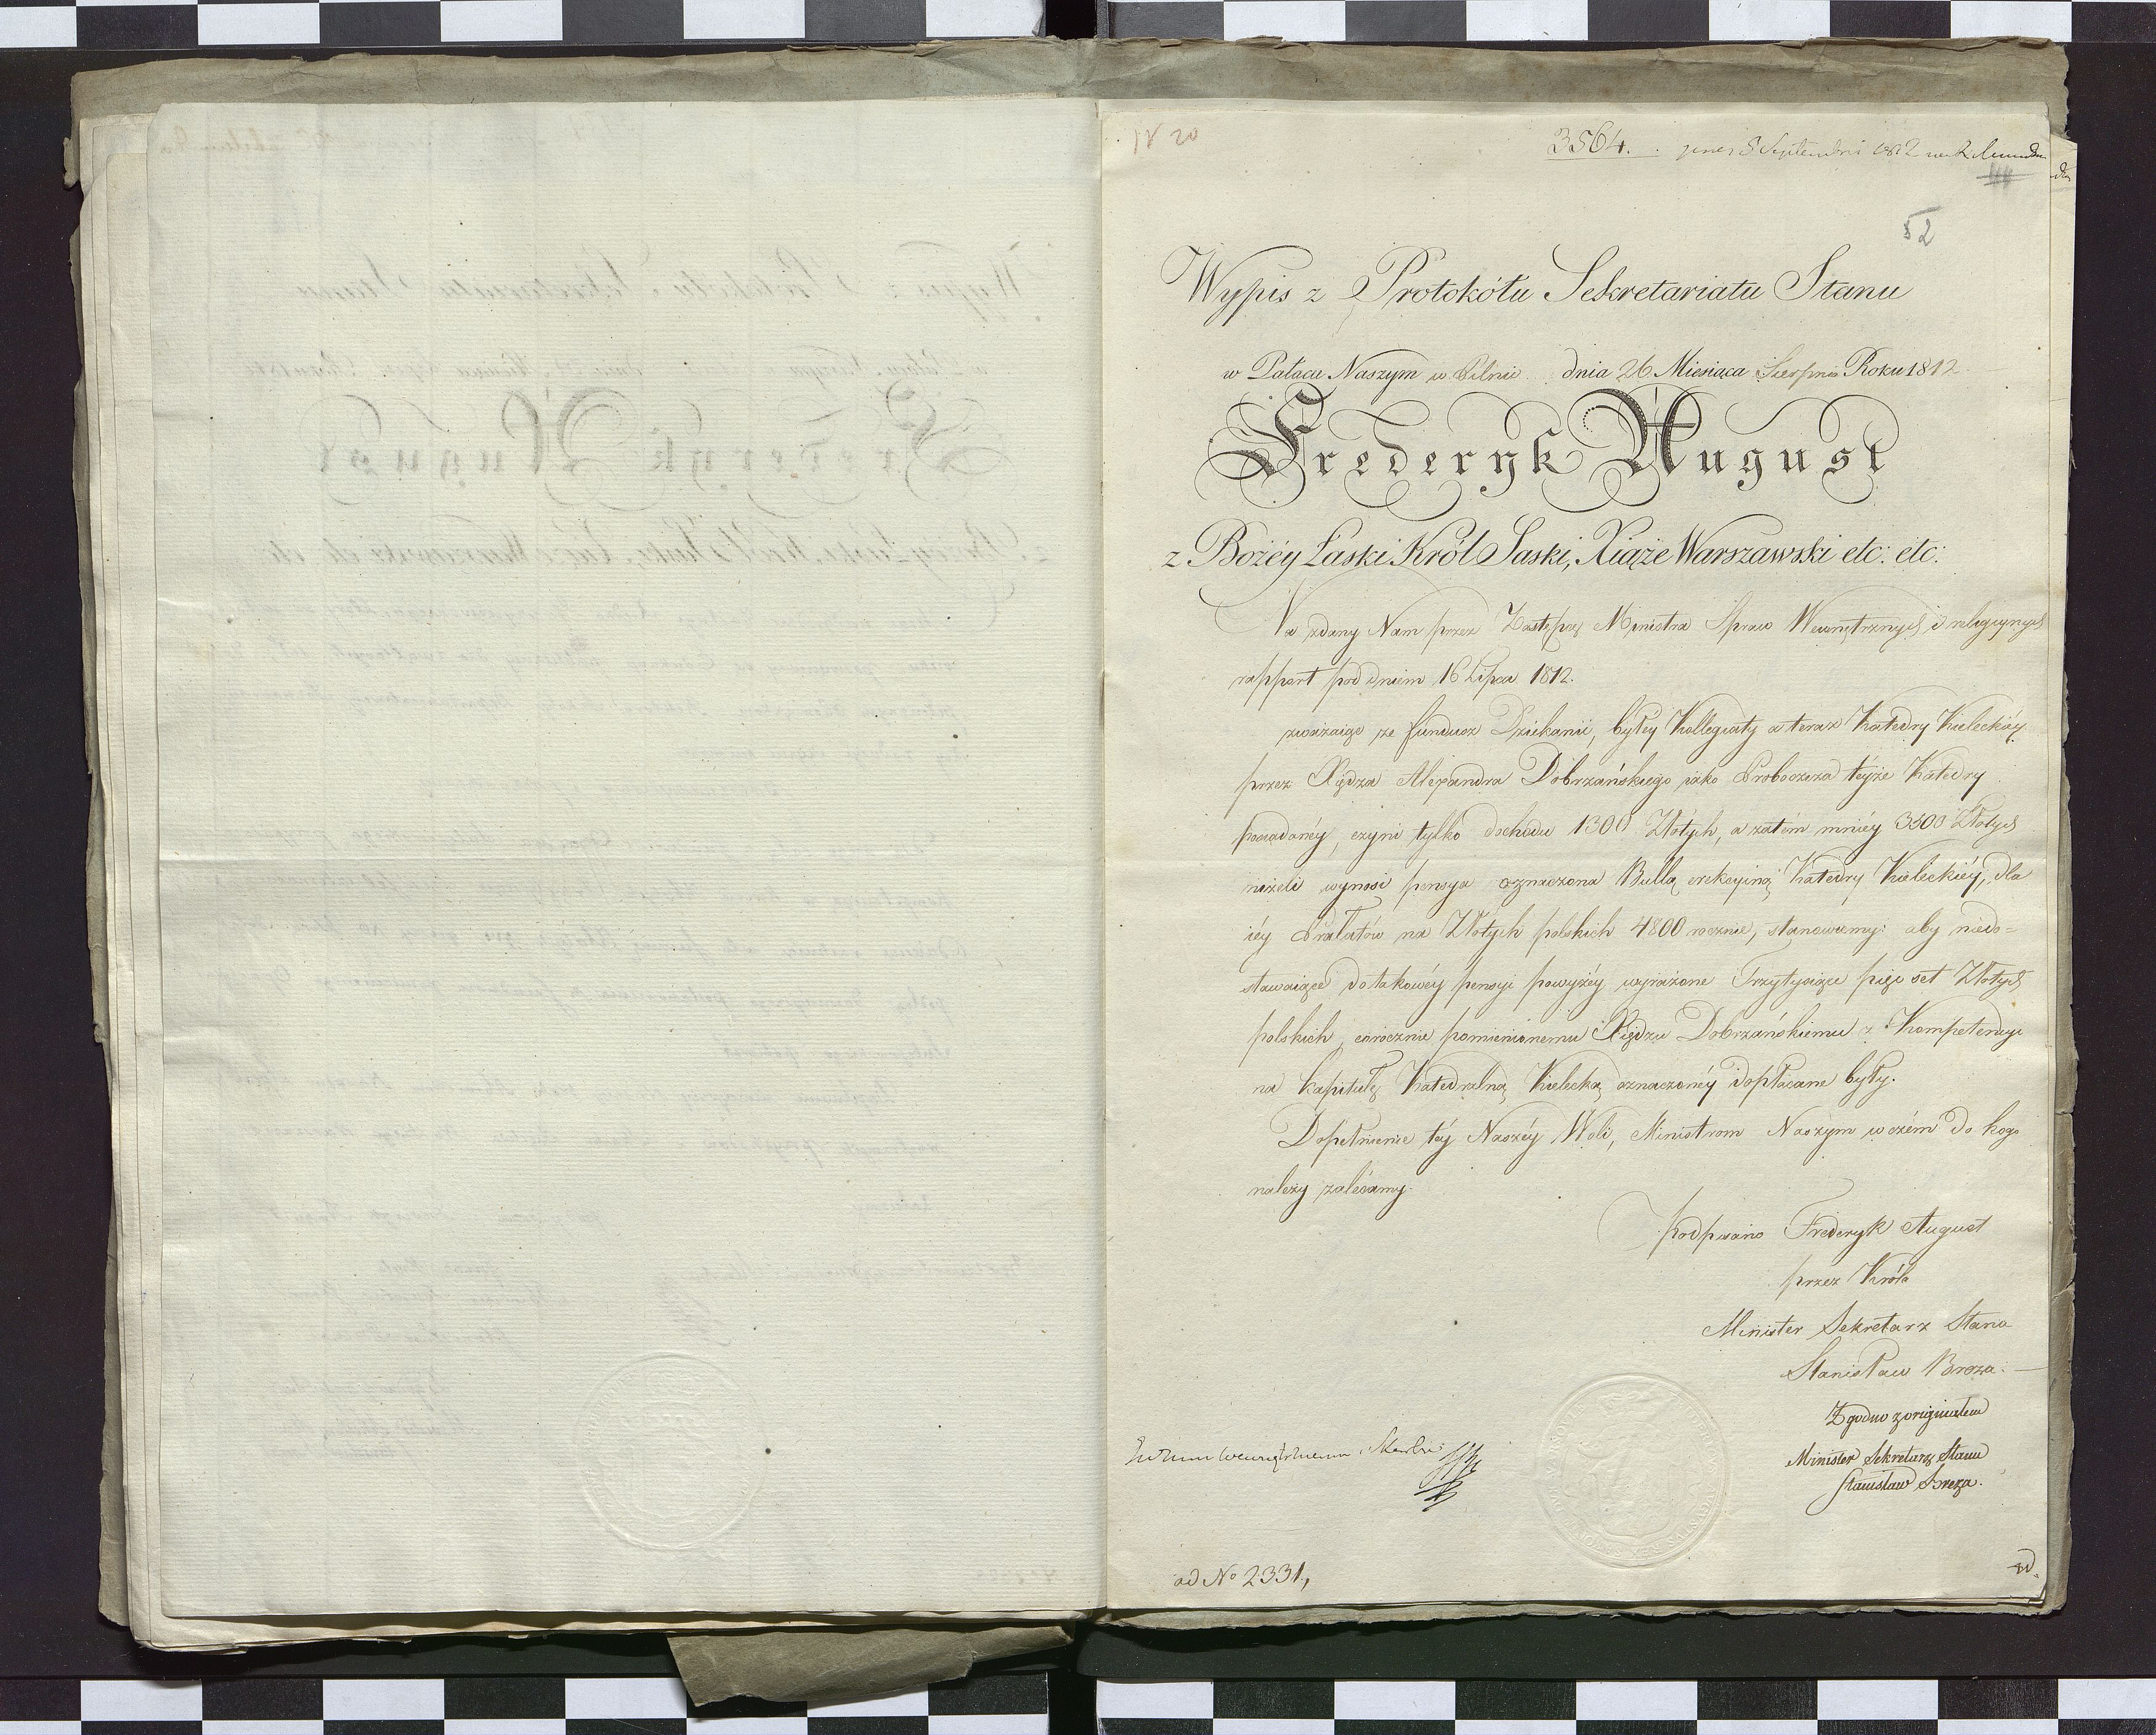 N 20
3564. Septembris 1812
52
Wypis z Protokółu Sekretariatu Stanu
w Pałacu Naszym w Pilnic dnia 26 Miesiąca Sierpnia Roku 1812
Frederyk August
z Bożéy Łaski Król Saski, Xiąże Warszawski etc: etc:
Na zdany Nam przez Zastępcę Ministra Spraw Wewnętrznych i religiynych
rapport pod dniem 16 Lipca 1812.
zważaiąc że fundusz Dziekanii, byłéy Kollegiaty a teraz Katedry Kieleckiéy
przez Xiędza Alexandra Dobrzańskiego iako Proboszcza téyże Katedry
posiadanéy, czyni tylko dochodu 1300 Złotych, a zatém mniéy 3500 Złotych
niżeli wynosi pensya oznaczona Bullą erekcyiną Katedry Kieleckiéy, dla
iéy Prałatów na Złotych polskich 4800 rocznie, stanowiemy: aby niedo=
stawaiące do takowéy pensyi powyżéy wyrażone Trzytysiące pięć set Złotych
polskich, corocznie pomienionemu Xiędzu Dobrzańskiemu z Kompetencyi
na kapitułę Katedralną Kielecką oznaczonéy dopłacane były.
Dopełnienie téy Naszéy Woli, Ministrom Naszym wczém do kogo
należy zalécamy.
podpisano Frederyk August
przez Króla
Minister Sekretarz Stanu
Stanisław Breza.
Zgodno z originałem
Minister Sekretarz Stanu
Stanisław Breza.
ad No 2331,